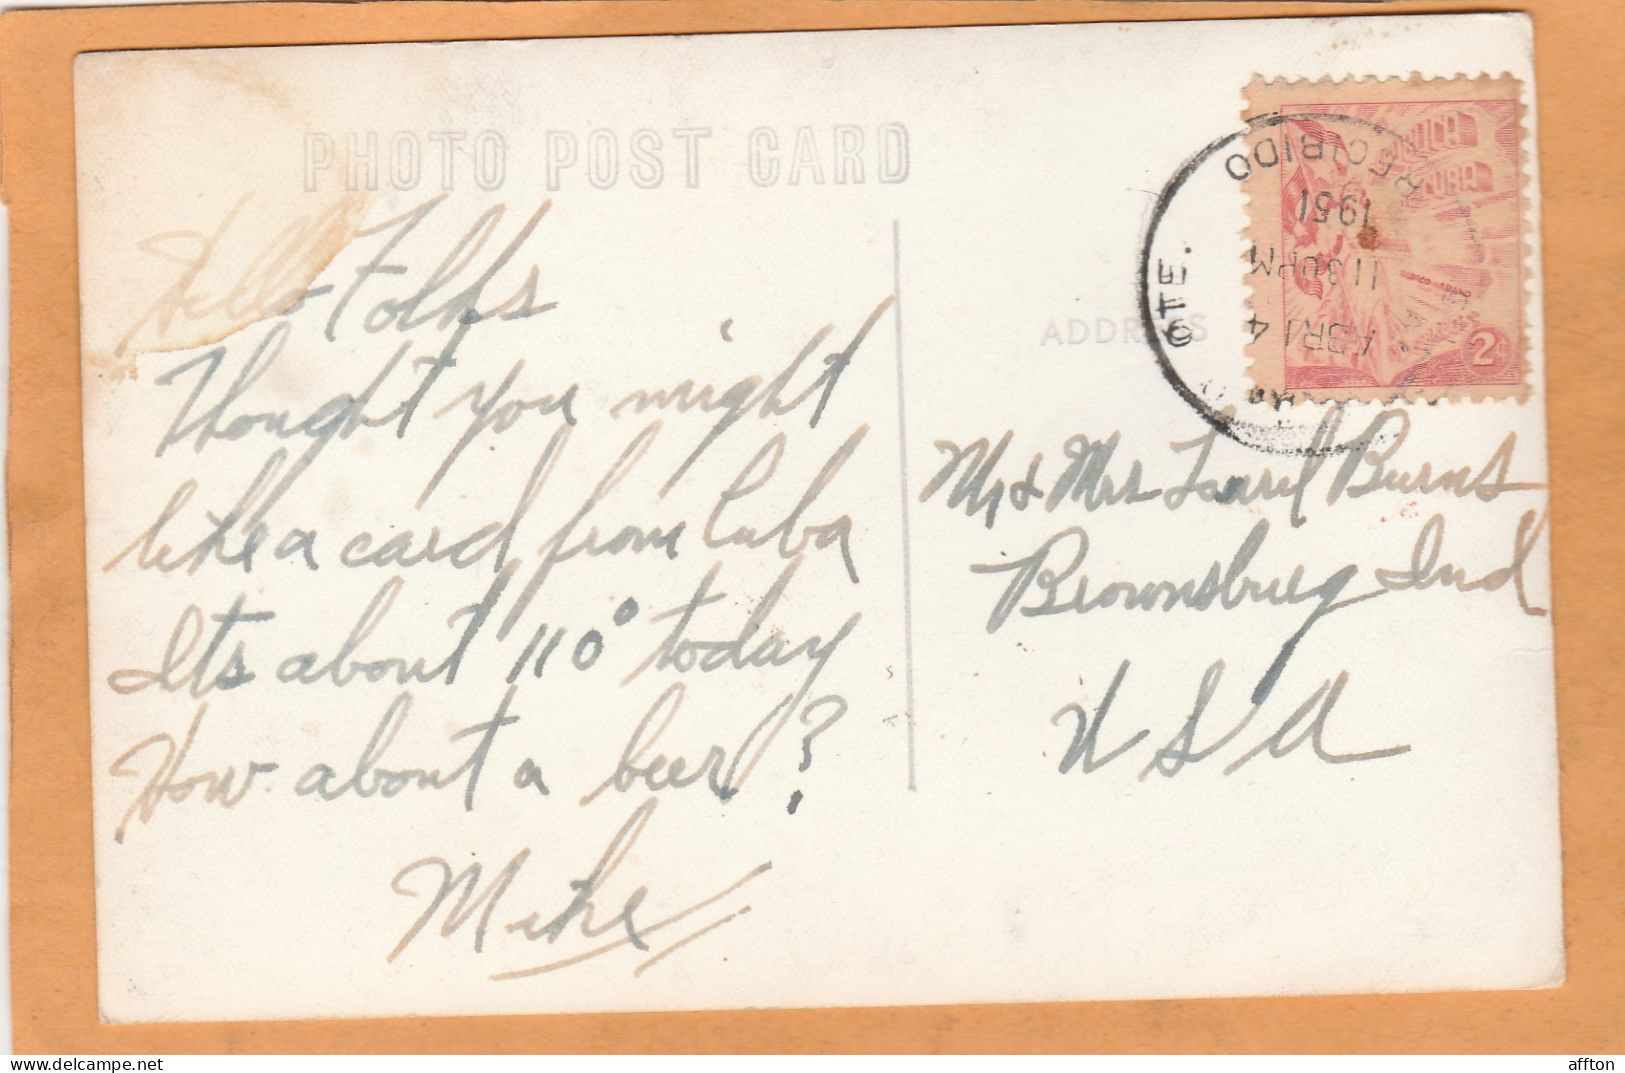 PHOTO POST CARD
Hello Folks
Thought you might
like a card from Cuba
Its about 110° today
How about a beer?
Mike
ADDRESS
RECIBIDO
1951
1130PM
ABR14
OTE.
2¢
Mr & Mrs Isarel Burns
Brownsburg Ind
U S A
affton